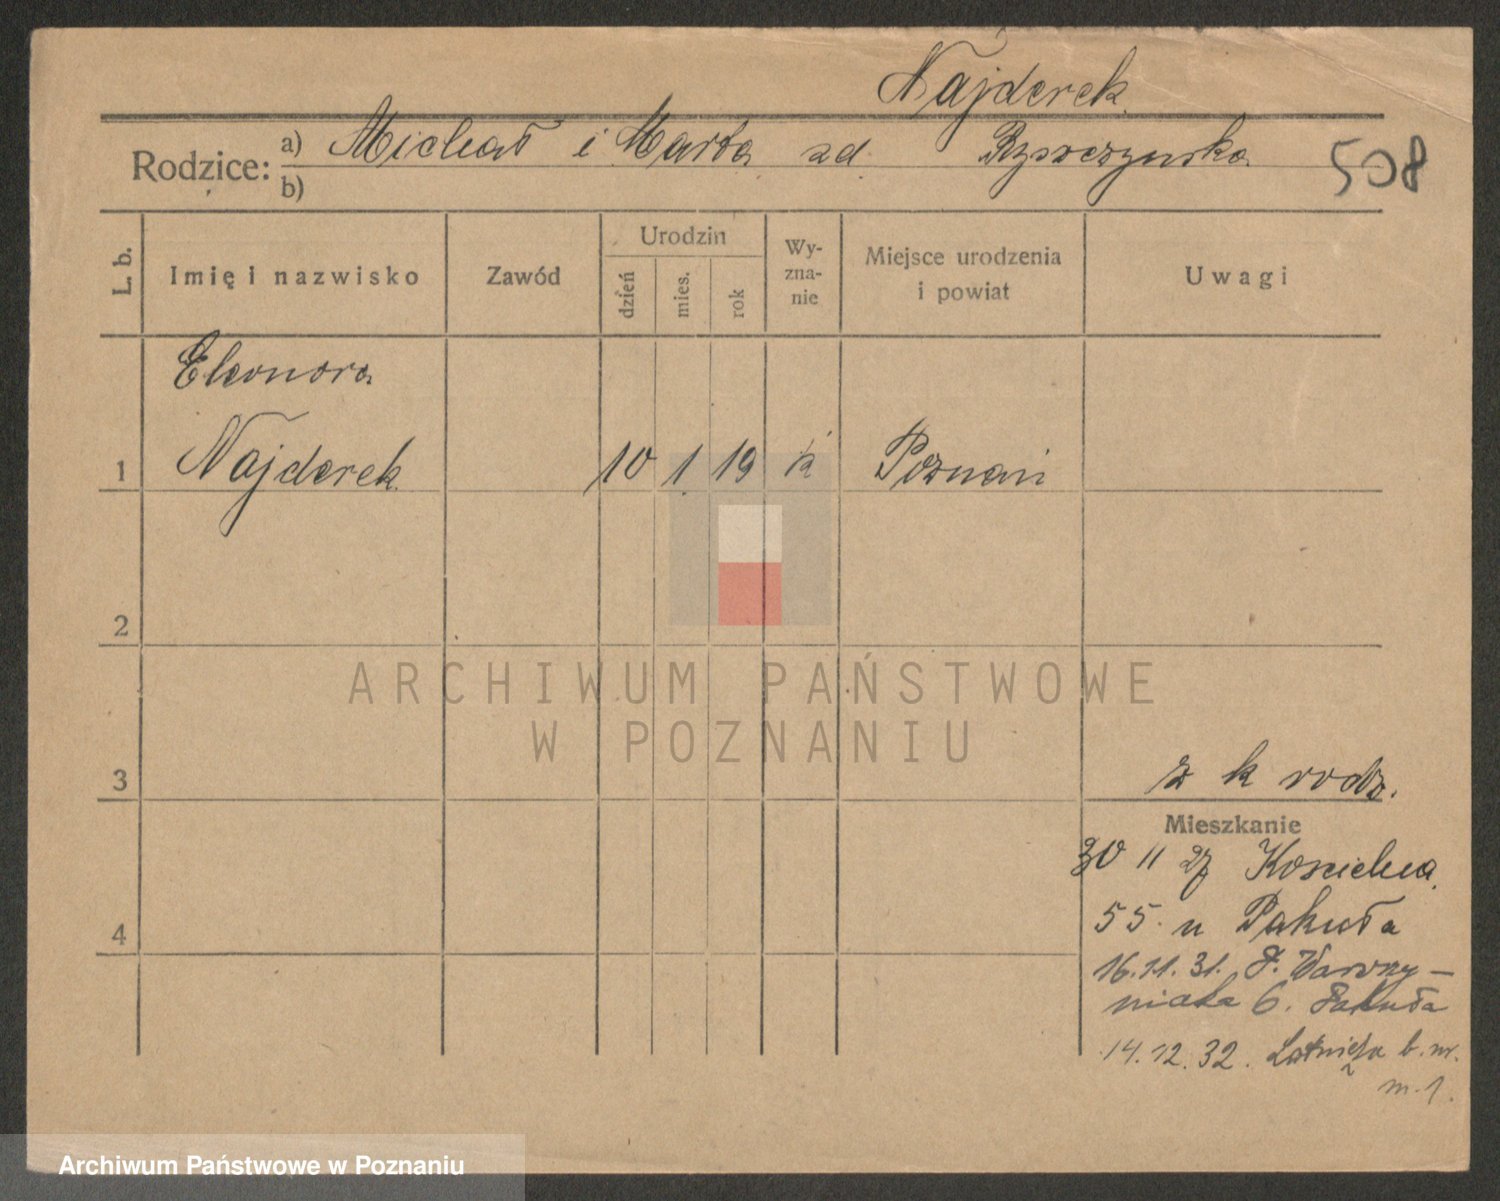 Najderek
Rodzice: a) Michał i Marta zd
b)
508
L. b.
Imię i nazwisko
Zawód
Urodzin
dzień
mies.
rok
Wy-
zna-
nie
Miejsce urodzenia
i powiat
Uwagi
Eleonora
1 Najderek 10 1 19 k Poznań
2
ARCHIWUM PAŃSTWOWE
W POZNANIU
3
z k rodz.
Mieszkanie
30 11 27 Kościelna
55 u Pakuła
4
16.11.31. F. Wawrzy-
niaka 6. Pakuła
14.12.32. b. nr.
m. 1.
Archiwum Państwowe w Poznaniu